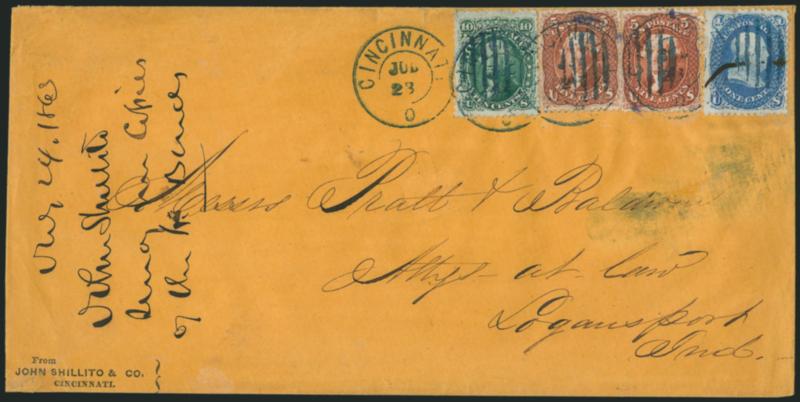 CINCINNATI
JUL
23
O
10 10
TEN CENTS
5 POSTAGE 5
FIVE CENTS
1 1
ONE CENT
Messrs Pratt & Baldwin
Attys- at- law
Logansport
Ind.
24. 1863
John Shillito
Copies
of the
From
JOHN SHILLITO & CO.
CINCINNATI.